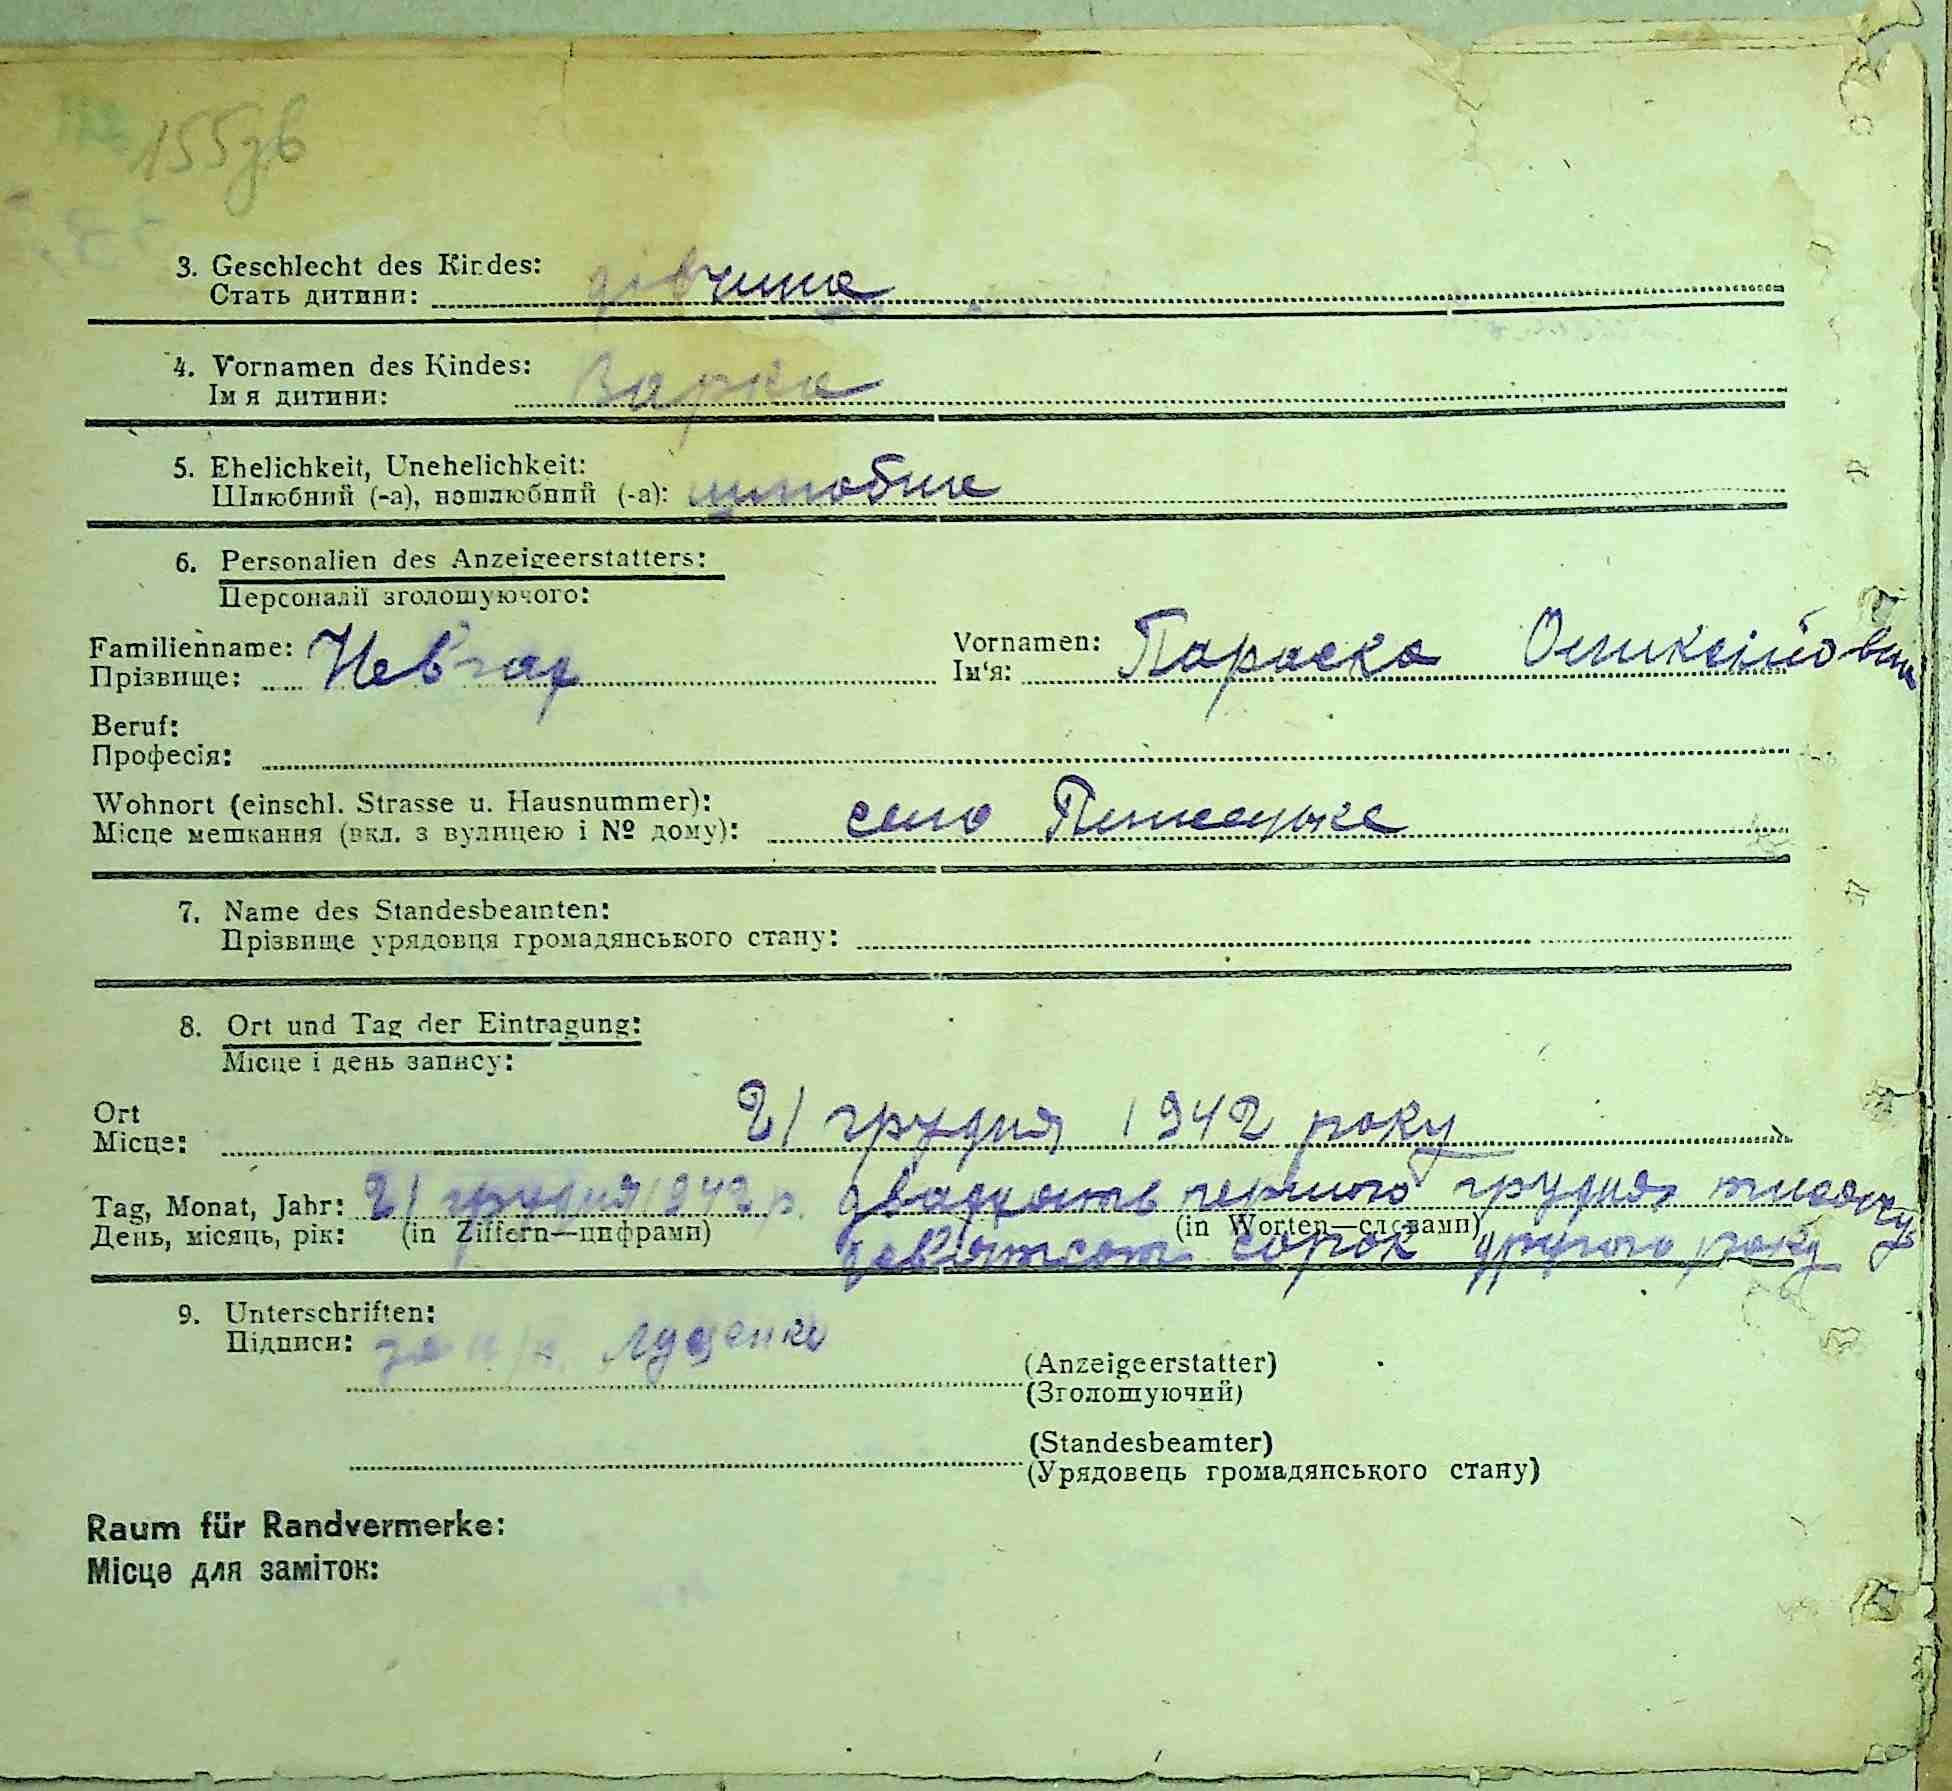 155зв
3. Geschlecht des Kindes:
Стать дитини: дівчина
4. Vornamen des Kindes:
Імя дитини: Варка
5. Ehelichkeit, Unehelichkeit:
Шлюбний (-а), нешлюбний (-а): шлюбна
6. Personalien des Anzeigeerstatters:
Персоналії зголошуючого:
Familienname: Невгад Vornamen: Параска
Прізвище: Ім'я:
Beruf:
Професія:
Wohnort (einschl. Strasse u. Hausnummer): село
Місце мешкання (вкл. з вулицею і № дому):
7. Name des Standesbeamten:
Прізвище урядовця громадянського стану:
8. Ort und Tag der Eintragung:
Місце і день запису:
Ort 21 грудня 1942 року
Місце:
Tag, Monat, Jahr: 21 грудня 1942 р. двадцять першого грудня тисячу
День, місяць, рік: (in Ziffern—цифрами) (in Worten—словами)
девятсот сорок другого року
9. Unterschriften:
Підписи: Луценко
(Anzeigeerstatter)
(Зголошуючий)
(Standesbeamter)
(Урядовець громадянського стану)
Raum für Randvermerke:
Місце для заміток: